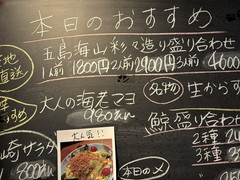 本日のおすすめ
五島海山彩々造り盛り合わせ
直送
1人前 1800円 2人前 2900円 3人前 4600
大人の海老マヨ
980
名物 生からす
鯨盛り合わせ
2種
3種
サラダ
800
大人気!!
本日の〆